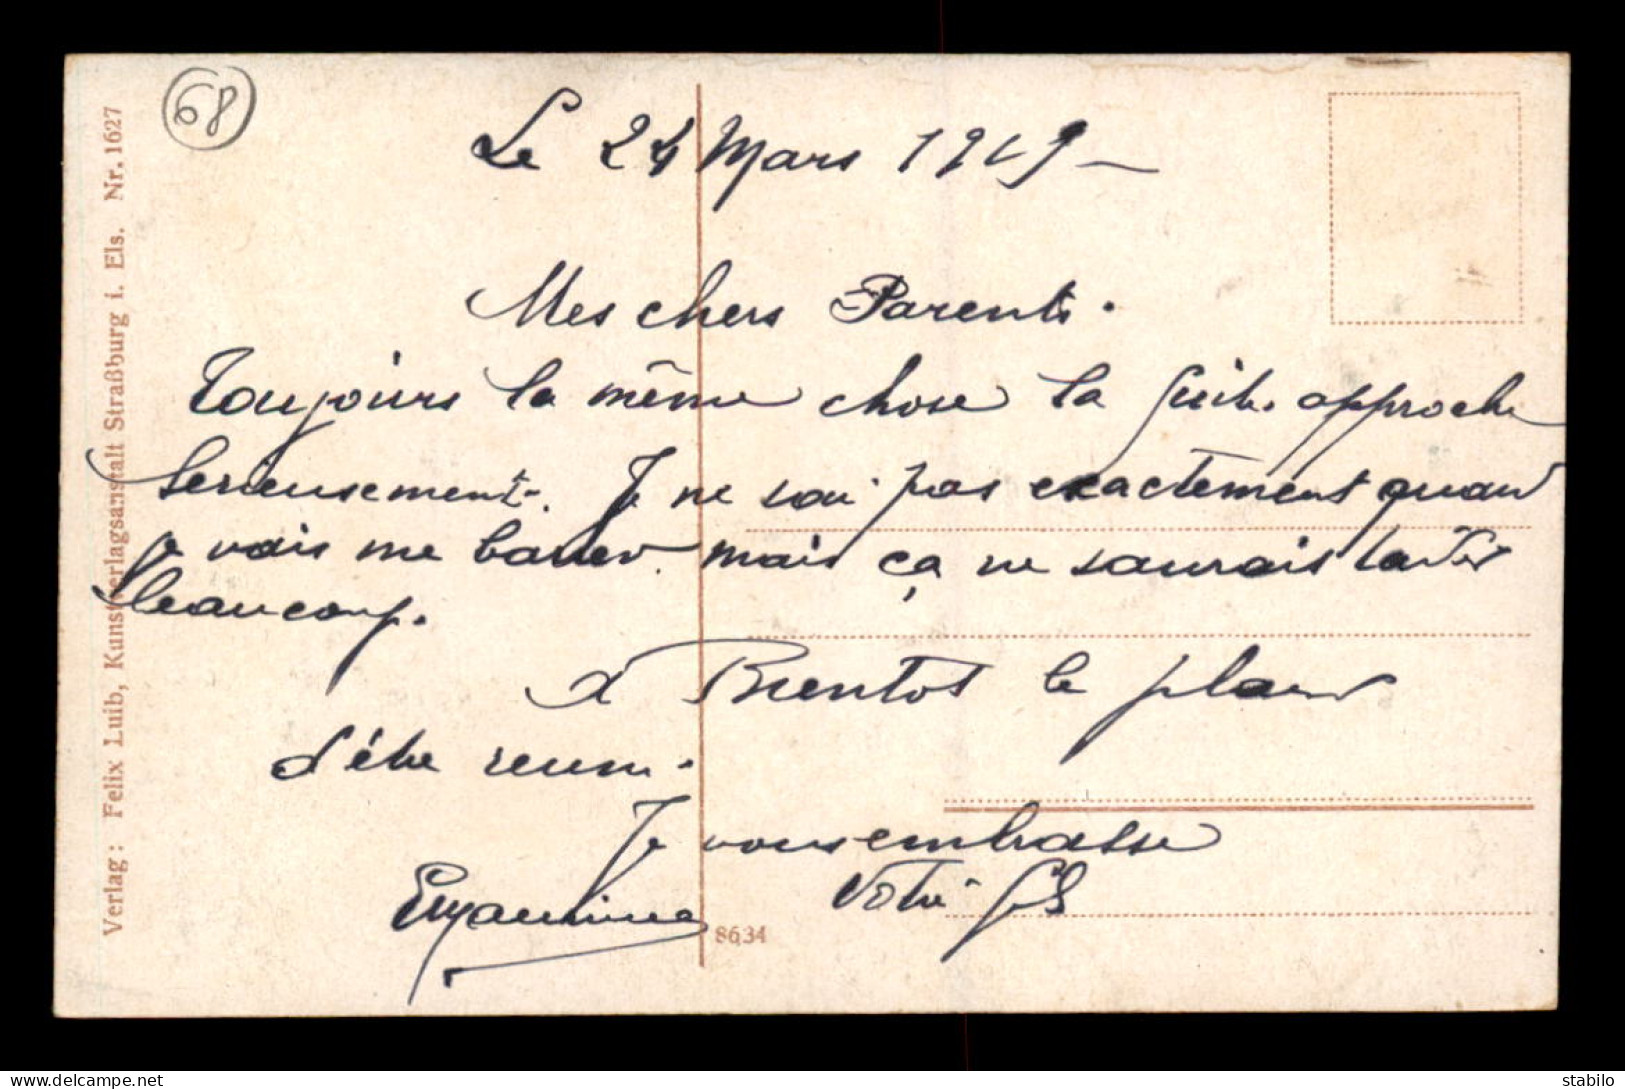 68
Le 24 Mars 1919
Mes chers Parents.
Toujours la même chose la fuite approche
serieusement. Je ne sai pas exactement quand
je vais me barrer. mais ça ne saurais tarder
beaucoup.
A Bientot le plaisir
d'être reuni.
Je vous embrasse
Votre fils
Verlag: Felix Luib, Kunstverlagsanstalt Straßburg i. Els. Nr. 1627
8634
stabilo